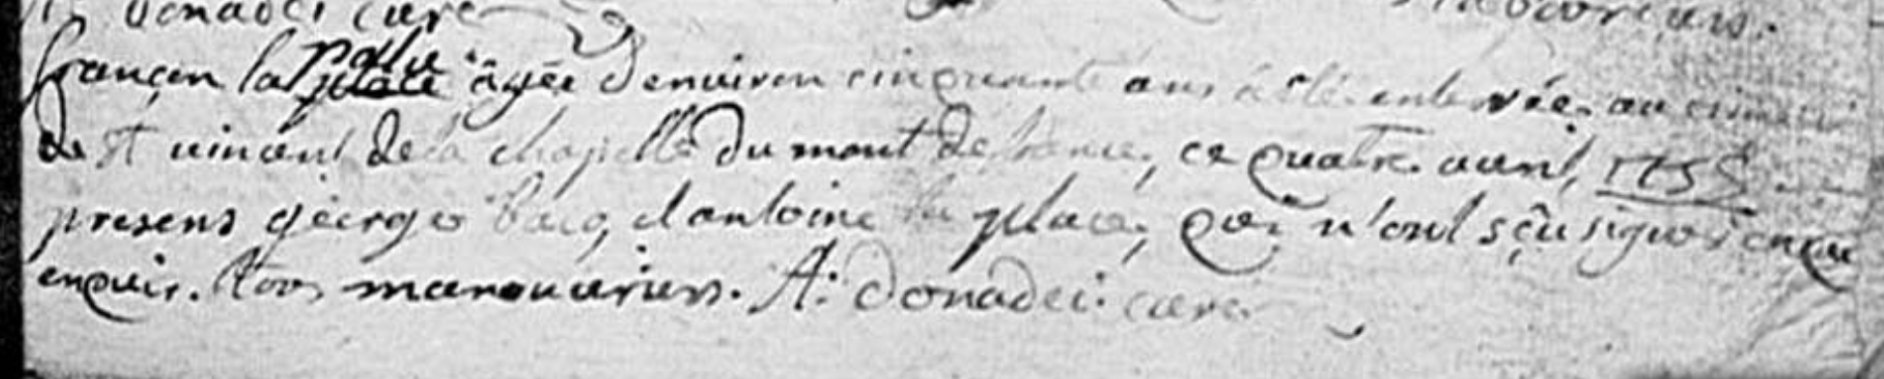 donadei curé
françoise la palu place âgée denviron cinquante ans à été enterrée au cimetiere
de st vincent de la chapelle du mont de france, ce quatre avril, 1755
presens george bacq, et antoine la place, qui n'ont sçu signer enque
enquis. tous manouvriers. A: donadei. curé